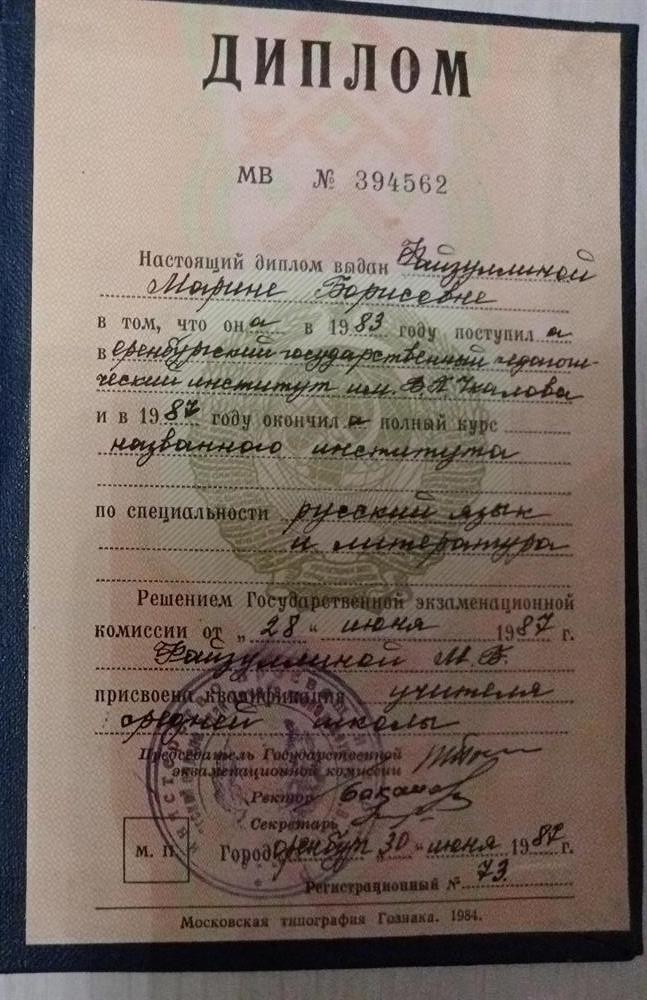 ДИПЛОМ
МВ № 394562
Настоящий диплом выдан Файзуллиной
Марине Борисовне
в том, что она в 1983 году поступила
в Оренбургский государственный педагоги-
ческий институт им. В.П. Чкалова
и в 1987 году окончила полный курс
названного института
по специальности русский язык
и литература
Решением Государственной экзаменационной
комиссии от „28“ июня 1987 г.
Файзуллиной М.Б.
присвоена квалификация учителя
средней школы
Председатель Государственной
экзаменационной комиссии
Ректор
Секретарь
М. П.
Город Оренбург „30“ июня 1987 г.
Регистрационный № 73.
Московская типография Гознака. 1984.